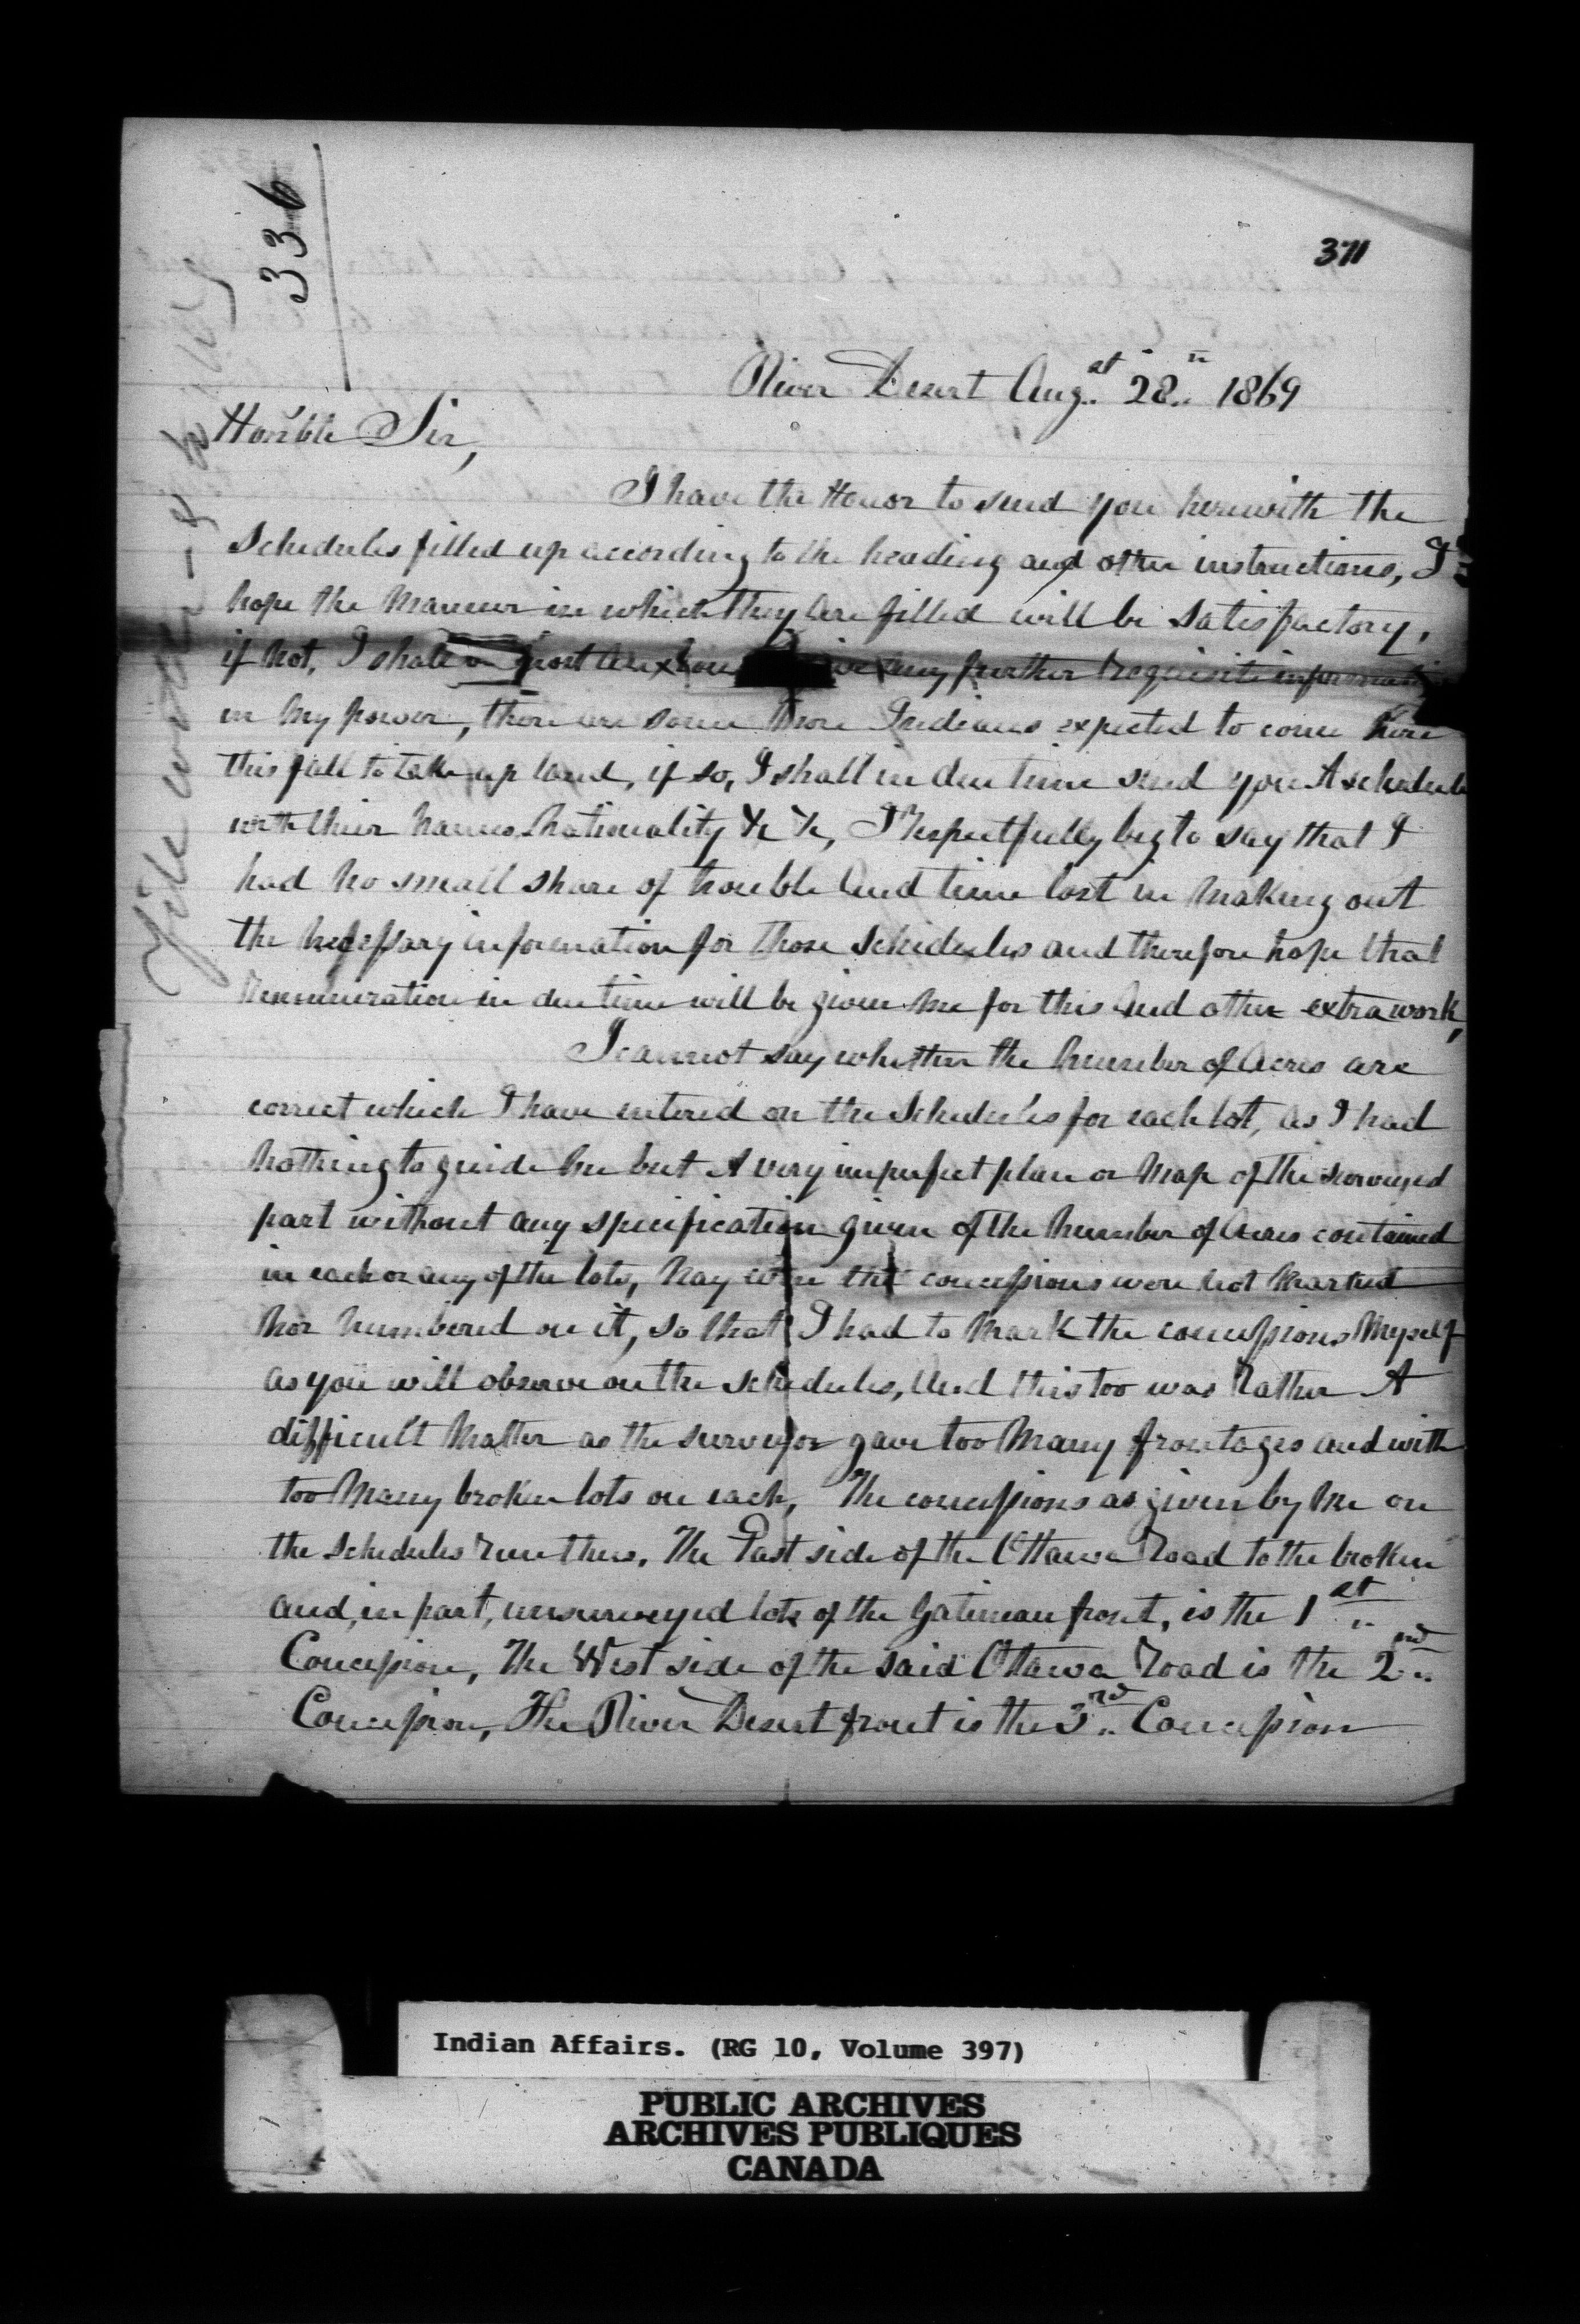 336
371
River Desert Aug.st 28.th 1869
Hon'ble Sir,
I have the Honor to send you herewith the
Schedules filled up according to the heading and other instructions, I
hope the Manner in which they are filled will be satisfactory,
if not, I shall most anxious any further requisite information
in my power, there are some more Indians expected to come here
this fall to take up land, if so, I shall in due time send you A schedule
with their names, Nationality &c &c, I respectfully beg to say that I
had no small share of trouble and time lost in making out
the necessary information for those schedules and therefore hope that
Remuneration in due time will be given me for this and other extra work,
I cannot say whether the number of acres are
correct which I have entered on the schedules for each lot, as I had
nothing to guide me but A very imperfect plan or map of the surveyed
part without any specification given of the number of acres contained
in each or any of the lots, Nay even the concessions were not marked
nor numbered on it, so that I had to mark the concessions Myself
as you will observe on the schedules, and this too was rather A
difficult matter as the surveyor gave too many frontages and with
too many broken lots on each, The concessions as given by me on
the schedules run thus. The East side of the Ottawa Road to the broken
and, in part, unsurveyed lots of the Gatineau front, is the 1st
Concession, The West side of the said Ottawa Road is the 2nd
Concession, The River Desert front is the 3rd Concession
Indian Affairs. (RG 10, Volume 397)
PUBLIC ARCHIVES
ARCHIVES PUBLIQUES
CANADA